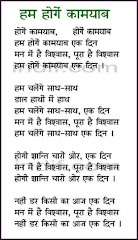 हम होगें कामयाब
होगें कामयाब, होगें कामयाब
हम होगें कामयाब एक दिन
मन में है विश्वास, पूरा है विश्वास
हम होगें कामयाब एक दिन ।
हम चलेंगे साथ-साथ
डाल हाथों में हाथ
हम चलेंगे साथ-साथ, एक दिन
मन में है विश्वास, पूरा है विश्वास
हम चलेंगे साथ-साथ एक दिन ।
होगी शान्ति चारों ओर, एक दिन
मन में है विश्वास, पूरा है विश्वास
होगी शान्ति चारों ओर एक दिन ।
नहीं डर किसी का आज एक दिन
मन में है विश्वास, पूरा है विश्वास
नहीं डर किसी का आज एक दिन ।